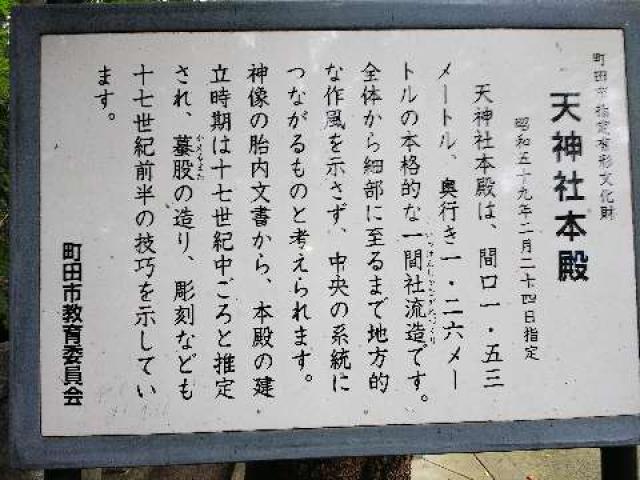 町田市指定有形文化財
天神社本殿
昭和五十九年二月二十四日指定
天神社本殿は、間口一・五三
メートル、奥行き一・二六メー
トルの本格的な一間社流造です。
いっけんしゃながれづくり
全体から細部に至るまで地方的
な作風を示さず、中央の系統に
つながるものと考えられます。
神像の胎内文書から、本殿の建
立時期は十七世紀中ごろと推定
され、蟇股の造り、彫刻なども
かえるまた
十七世紀前半の技巧を示してい
ます。
町田市教育委員会